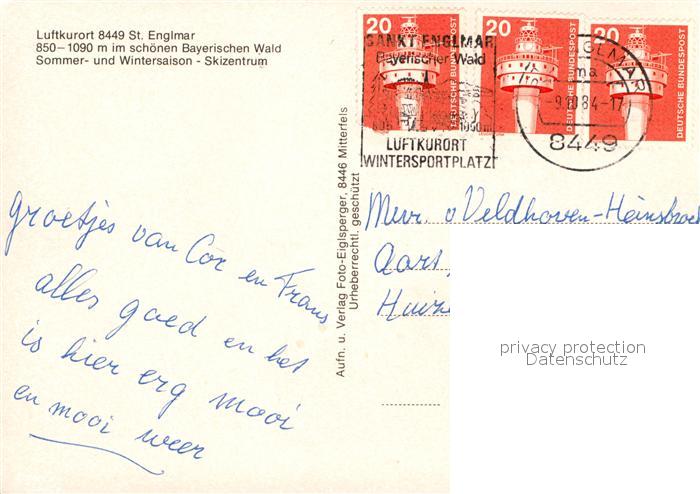 Luftkurort 8449 St. Englmar
850–1090 m im schönen Bayerischen Wald
Sommer- und Wintersaison - Skizentrum
groetjes van Cor en Frans
alles goed en het
is hier erg mooi
en mooi weer
Aufn. u. Verlag Foto-Eiglsperger, 8446 Mitterfels
Urheberrechtl. geschützt
20
DEUTSCHE BUNDESPOST
20
DEUTSCHE BUNDESPOST
20
DEUTSCHE BUNDESPOST
SANKT ENGLMAR
Bayerischer Wald
LUFTKURORT
WINTERSPORTPLATZ
ma
84-17
8449
Mevr. v Veldhoven-Heinsbroek
Aart
privacy protection
Datenschutz